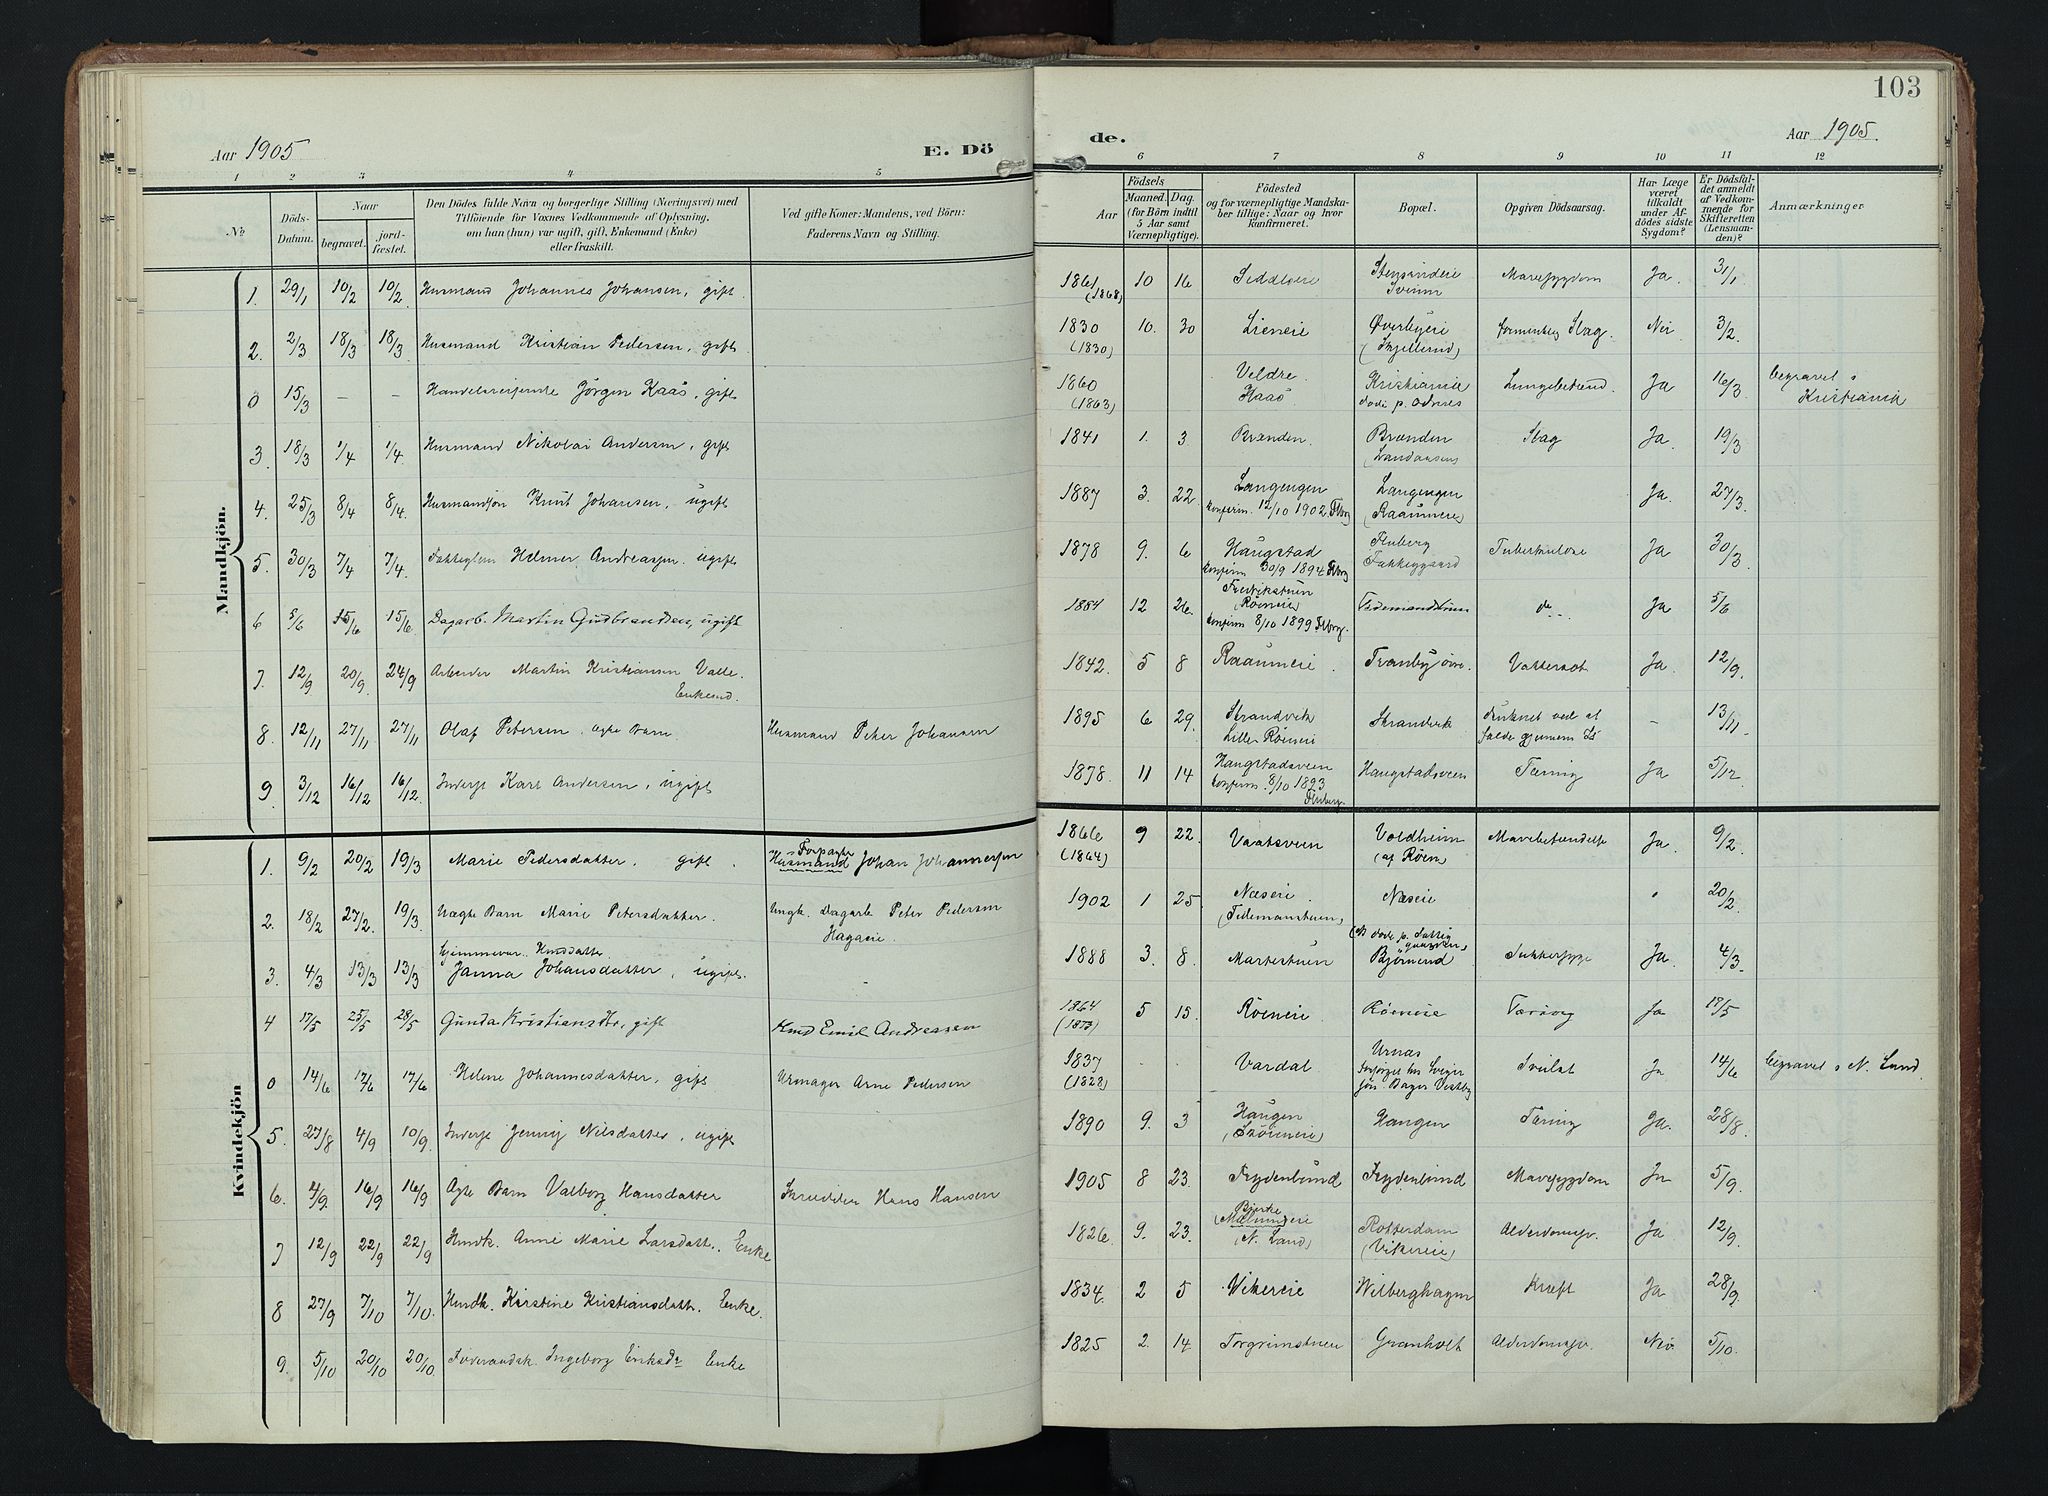 103
Aar 1905
E. Dö
de.
Aar 1905.
1 2 3 4 5
6 7 8 9 10 11 12
No
Döds-Datum.
Naar
begravet.
jord-fæstet.
Den Dödes fulde Navn og borgerlige Stilling (Næringsvei) med
Tilföiende for Voxnes Vedkommende af Oplysning,
om han (hun) var ugift, gift, Enkemand (Enke)
eller fraskilt.
Ved gifte Koner: Mandens, ved Börn:
Faderens Navn og Stilling.
Födsels
Aar
Maaned. Dag.
(for Börn indtil
5 Aar samt
Værnepligtige).
Födested
og for værnepligtige Mandska-
ber tillige: Naar og hvor
konfirmeret.
Bopæl.
Opgiven Dödsaarsag.
Har Læge
været
tilkaldt
under Af-
dödes sidste
Sygdom?
Er Dödsfal-
det anmeldt
af Vedkom-
mende for
Skifteretten
(Lensman-
den)?
Anmærkninger
Mandkjön.
1. 29/1 10/2 10/2 Husmand Johannes Johansen, gift. 1861 (1868) 10 16 Mavesygdom Ja. 31/1
2. 2/3 18/3 18/3 Husmand Kristian Pedersen, gift. 1830 (1830) 10. 30 Lieneie Øverbyeie Slag. Nei 3/2
0 15/3 – – Handelsreisende Jörgen Kaas, gift 1860 (1863) Veldre. Kaas Kristiania döde p. Odnæs Lungebetænd. Ja 16/3 begravet i Kristiania
3. 18/3 1/4 1/4. Husmand Nikolai Andersen, gift 1841 1. 3 Brænden. Brænden Slag Ja. 19/3
4. 25/3 8/4 8/4. Husmandsön Knut Johansen, ugift 1887 3. 22. Langengen konfirm. 12/10 1902. Flbrg Langengen (Raaumeie) Ja. 27/3.
5. 30/3 7/4 7/4. Helmer Andreassen. ugift 1878 9. 6 Haugstad konfirm 30/9 1894 Flbrg Fluberg Fattiggaard Tuberkulose Ja 30/3
6 5/6 15/6 15/6 Dagarb. Martin Gudbrandsen, ugift 1884 12 26. Fredrikstuen (Röeneie) konfirm 8/10 1899 Flbrg. Tidemandstuen do Ja 5/6
7. 12/9 20/9. 24/9 Arbeider Martin Kristiansen Valle. Enkemd. 1842. 5 8 Raaumeie. Tranby övre. Vattersot Ja. 12/9.
8. 12/11 27/11 27/11 Olaf Petersen, ægte Barn. Husmand Peter Johansen 1895 6 29. Strandvik Lille Röeneie Strandvik Druknet ved at falde gjennem Is – 13/11.
9. 3/12 16/12 16/12. Inderst Karl Andersen, ugift 1878. 11 14 Haugstadsveen konfirm. 8/10 1893 Fluberg Haugstadsveen Tæring Ja 5/12
Kvindekjön
1. 9/2 20/2 19/3 Marie Pedersdatter, gift. Forpagter Husmand Johan Johannessen 1866 (1864) 9 22. Vaatsveen Voldheim (af Röen) Mavebetændelse Ja. 9/2.
2. 18/2 27/2. 19/3 Uægte Barn Marie Petersdatter. Ungk. Dagarb. Peter Pedersen Hagaeie. 1902 1 25 Næseie. (Tidemanstuen) Næseie 20/2.
3. 4/3 13/3 13/3 Hjemmevær. Husdatter. Janna Johansdatter, ugift. 1888 3. 8. Martestuen Björnerud Sukkersyge Ja. 4/3.
4 17/5 25/5 28/5 Gunda Kristiansdtr, gift Hmd Emil Andreassen 1864 (1873) 5 15. Röeneie Röeneie Tæring Ja 17/5
0 14/6 17/6 17/6 Helene Johannesdatter, gift Urmager Arne Pedersen 1837 (1828) Vardal. Urnæs Ja 14/6 begravet i N. Land.
5. 27/8 4/9 10/9. Inderst Jenny Nilsdatter, ugift 1890 9. 3 Haugen Haugen Tæring Ja. 28/8.
6. 4/9. 16/9 16/9 Ægte Barn Valborg Hansdatter Skrædder Hans Hansen 1905 8 23. Frydenlund Frydenlund Mavesygdom Ja 5/9.
7 12/9 22/9 22/9 Husmk. Anne Marie Larsdatt. Enke 1826. 9. 23. Bjerke (N. Land) Rotterdam (Vikereie) Alderdomssv. Ja 12/9.
8 27/9 7/10 7/10. Husmk. Kirstine Kristiansdatt. Enke. 1834. 2 5 Vikereie Wilberghagen Kræft Ja 28/9.
9. 5/10 20/10 20/10 Föderaadsk. Ingeborg Eriksdr Enke 1825 2. 14 Torgrimstuen Granholt Alderdomssv. Nei. 5/10.